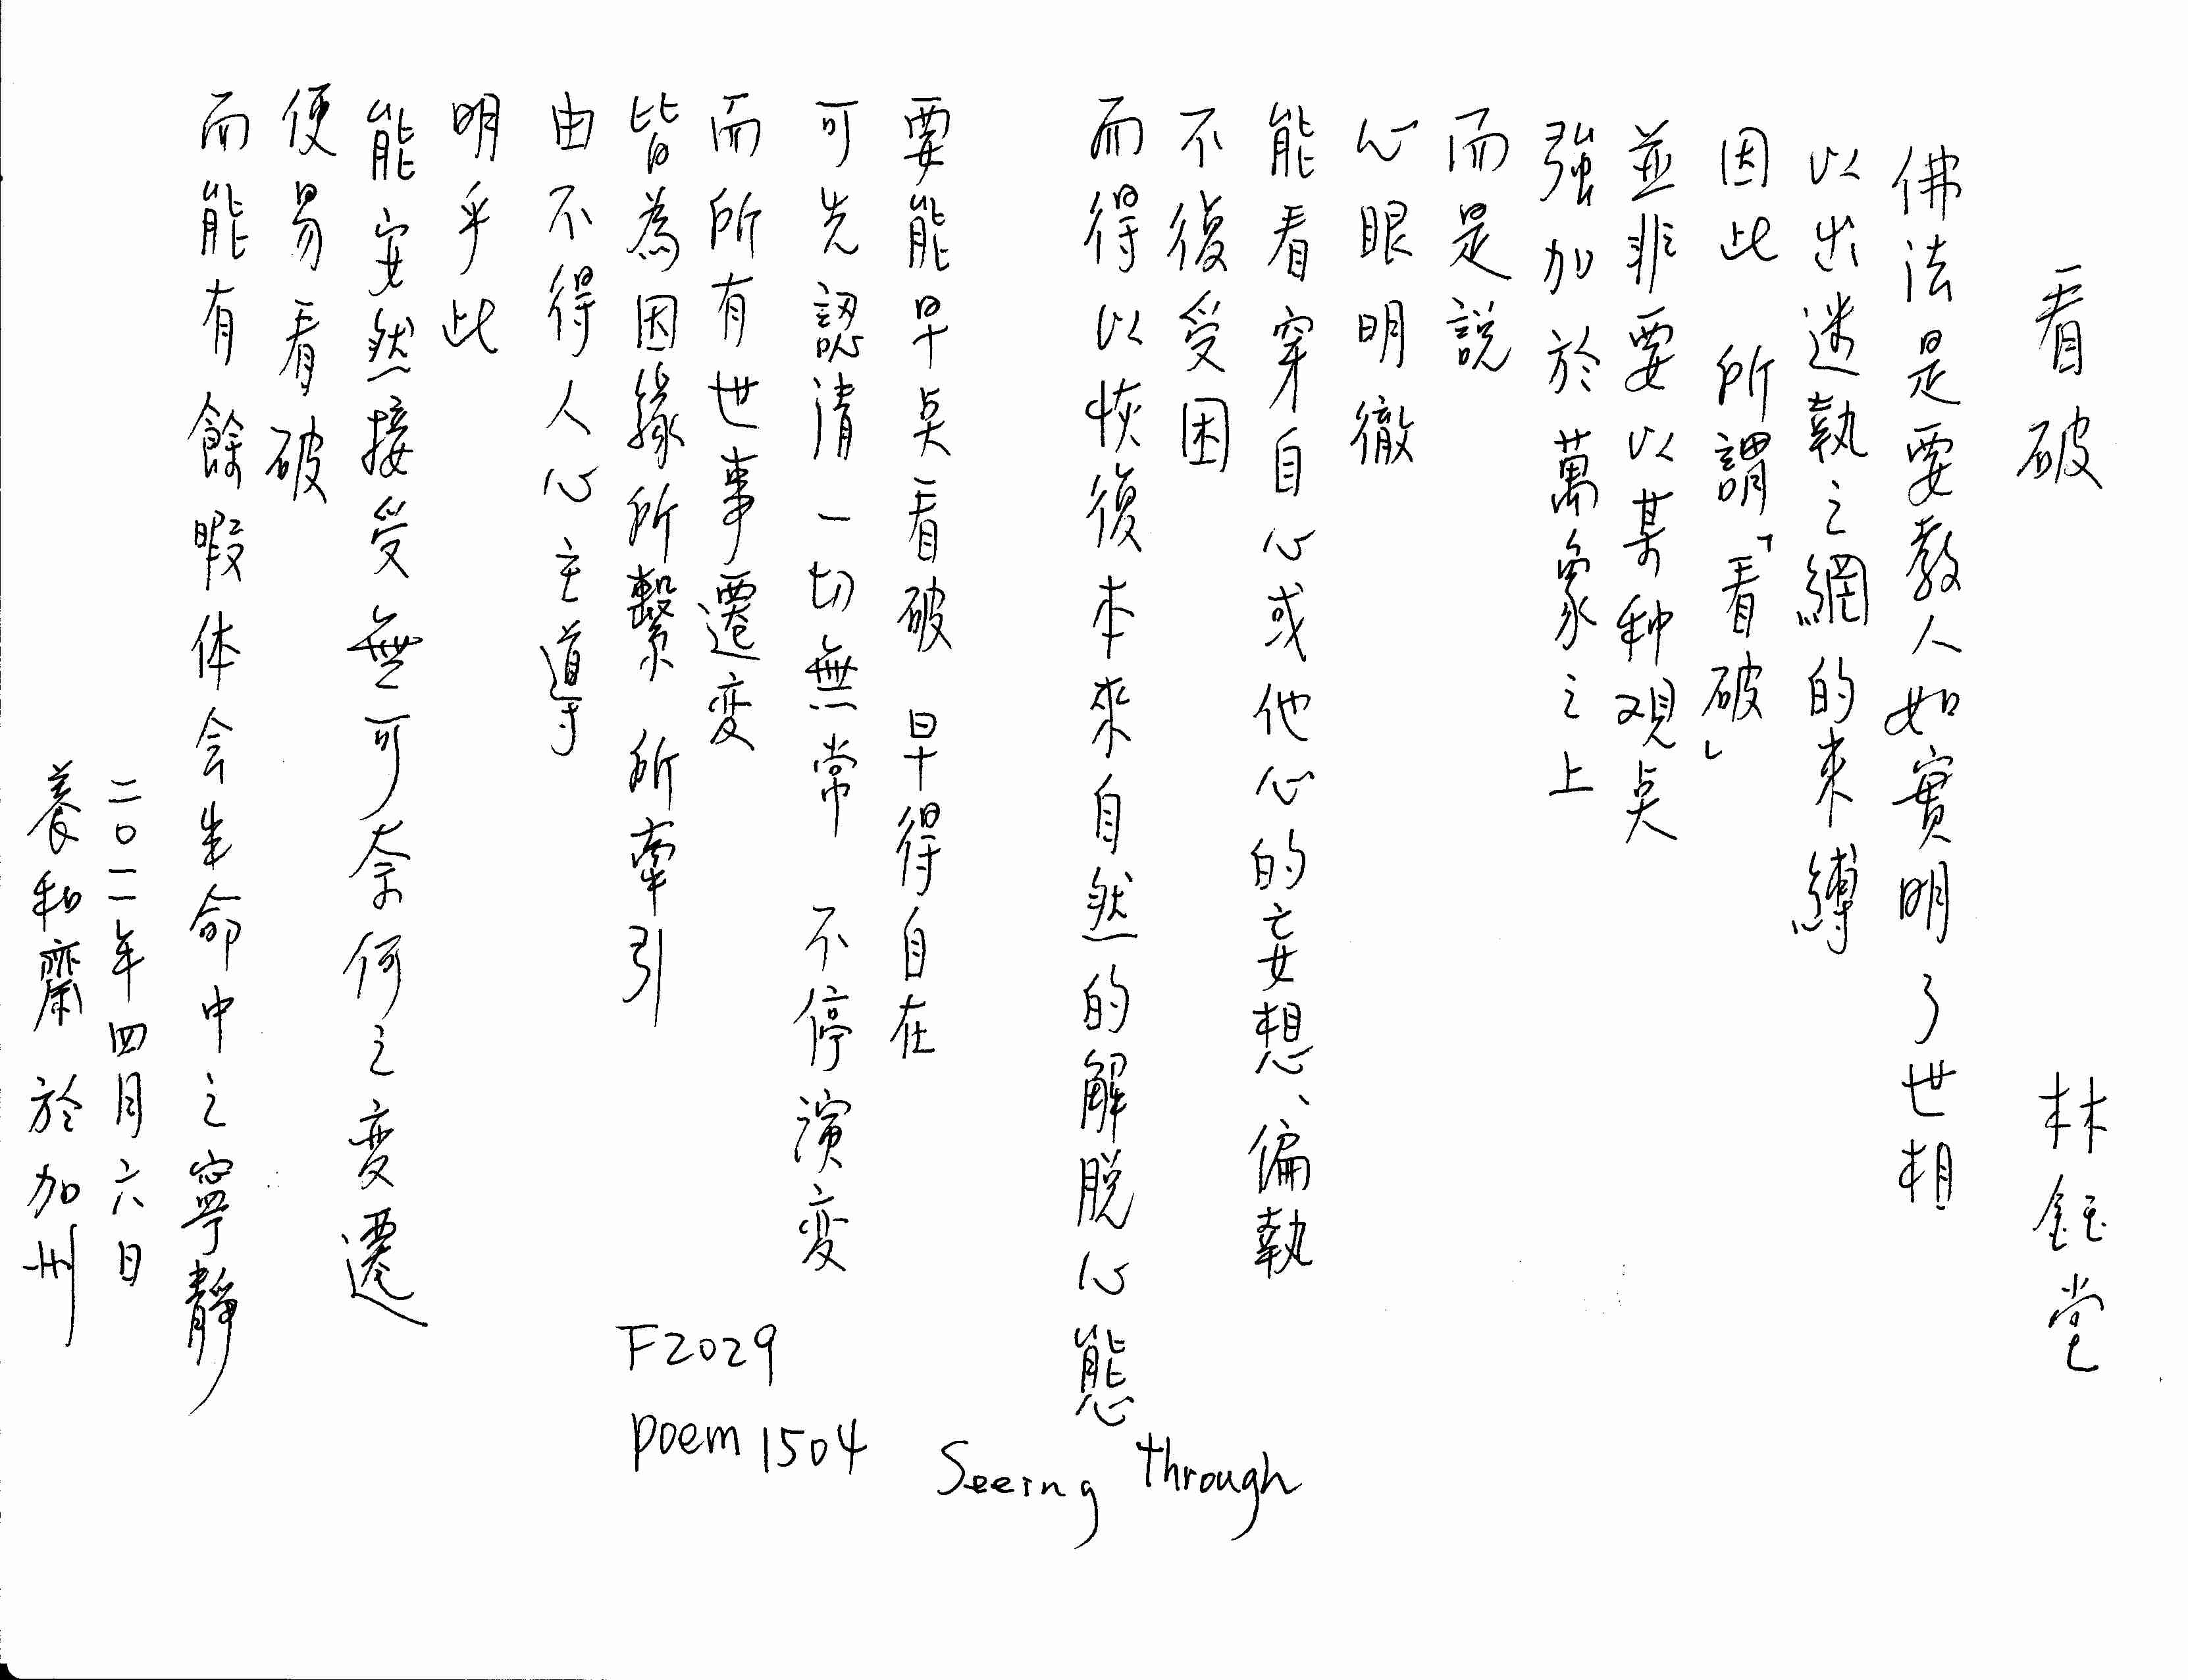 看破 林鈺堂
佛法是要教人如實明了世相
以出迷執之網的束縛
因此 所謂「看破」
並非要以某种观点
強加於萬象之上
而是說
心眼明徹
能看穿自心或他心的妄想、偏執
不復受困
而得以恢復本來自然的解脱心態
要能早点看破 早得自在
可先認清一切無常 不停演变
而所有世事遷变
皆為因緣所繫 所牽引
由不得人心主導
明乎此
能安然接受無可奈何之变遷
便易看破
而能有餘暇体会生命中之寧靜
二〇一一年四月六日
養和齋 於加州
F2029
poem 1504
Seeing through